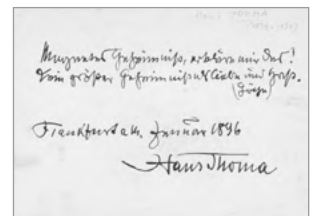 Magnetes Geheimniß, erkläre mir das!
Kein größer Geheimniß als Liebe und Haß.
(Göthe)
Frankfurt a/M. Januar 1896
Hans Thoma